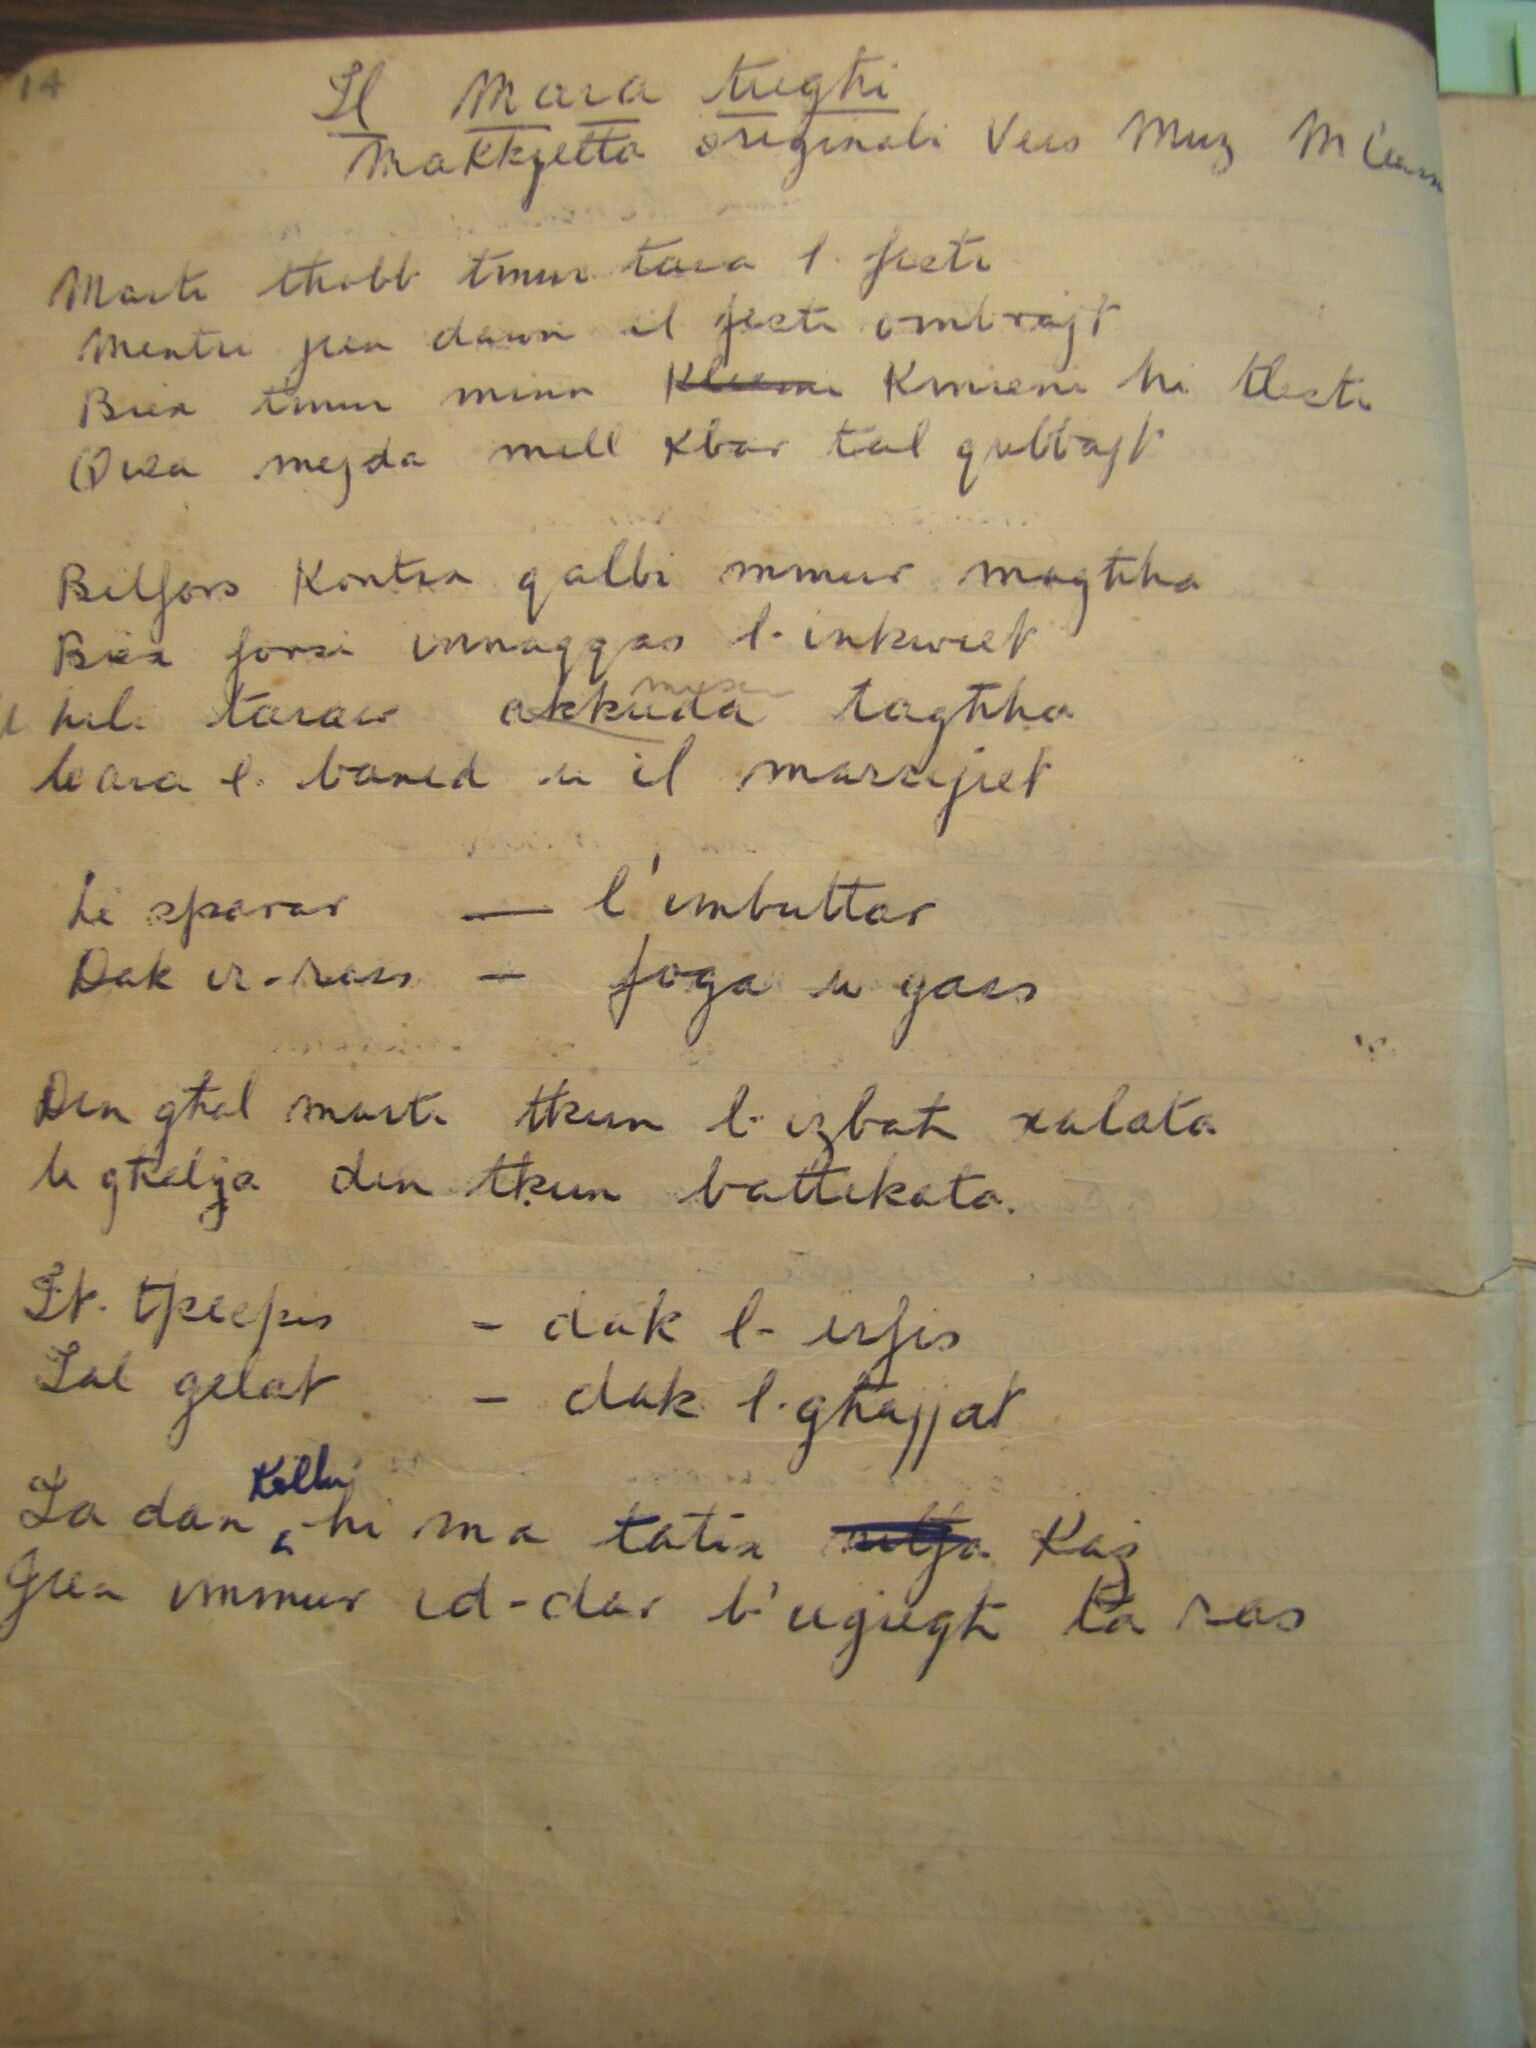 14
Il Mara tieghi
Makkjetta originali Vers Muz M
Marti thobb tmur tara l. festi
Mentri jien dawn il festi ombrajt
Biex tmur minn Kliemi Kmieni hi tlesti
Qisa mejda mill Kbar tal qubbajt
Bilfors Kontra qalbi mmur maghha
Biex forsi innaqqas l-inkwiet
hi taraw akkuda taghha
wara l-baned u il marcijiet
Li sparar — l'imbuttar
Dak ir-rass — foga u gass
Din ghal marti tkun l-izbah xalata
U ghalija din tkun battikata.
It-tpespis - dak l-isfis
Tal gelat - dak l-ghajjat
Ta dan Kollu hi ma tatix Kaz
Jien immur id-dar b'ugiegh ta ras